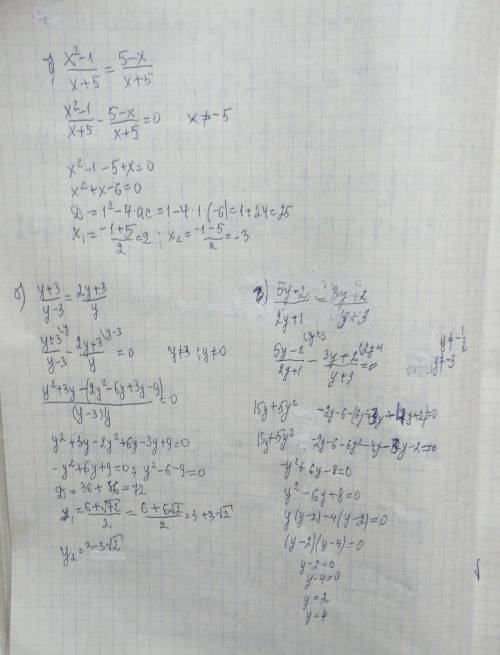 x²-1/x+5 = 5-x/x+5
x²-1/x+5 - 5-x/x+5 = 0 x≠-5
x²-1-5+x=0
x²+x-6=0
D=1²-4·ac=1-4·1·(-6)=1+24=25
x₁=-1+5/2=2; x₂=-1-5/2=-3
б) y+3/y-3 = 2y+3/y
y+3/y-3 - 2y+3/y = 0 y≠3; y≠0
y²+3y-(2y²-6y+3y-9)/(y-3)y = 0
y²+3y-2y²+6y-3y+9=0
-y²+6y+9=0; y²-6-9=0
D=36+36=72
y₁=6+√72/2=6+6√2/2=3+3√2
y₂=3-3√2
в) 5y-2/2y+1 = 3y+2/y+3
5y-2/2y+1 - 3y+2/y+3 = 0 y≠-1/2
y≠-3
15y+5y²
15y+5y² -2y-6-6y²-4y-3y-2=0
-y²+6y-8=0
y²-6y+8=0
y(y-2)-4(y-2)=0
(y-2)(y-4)=0
y-2=0
y-4=0
y=2
y=4